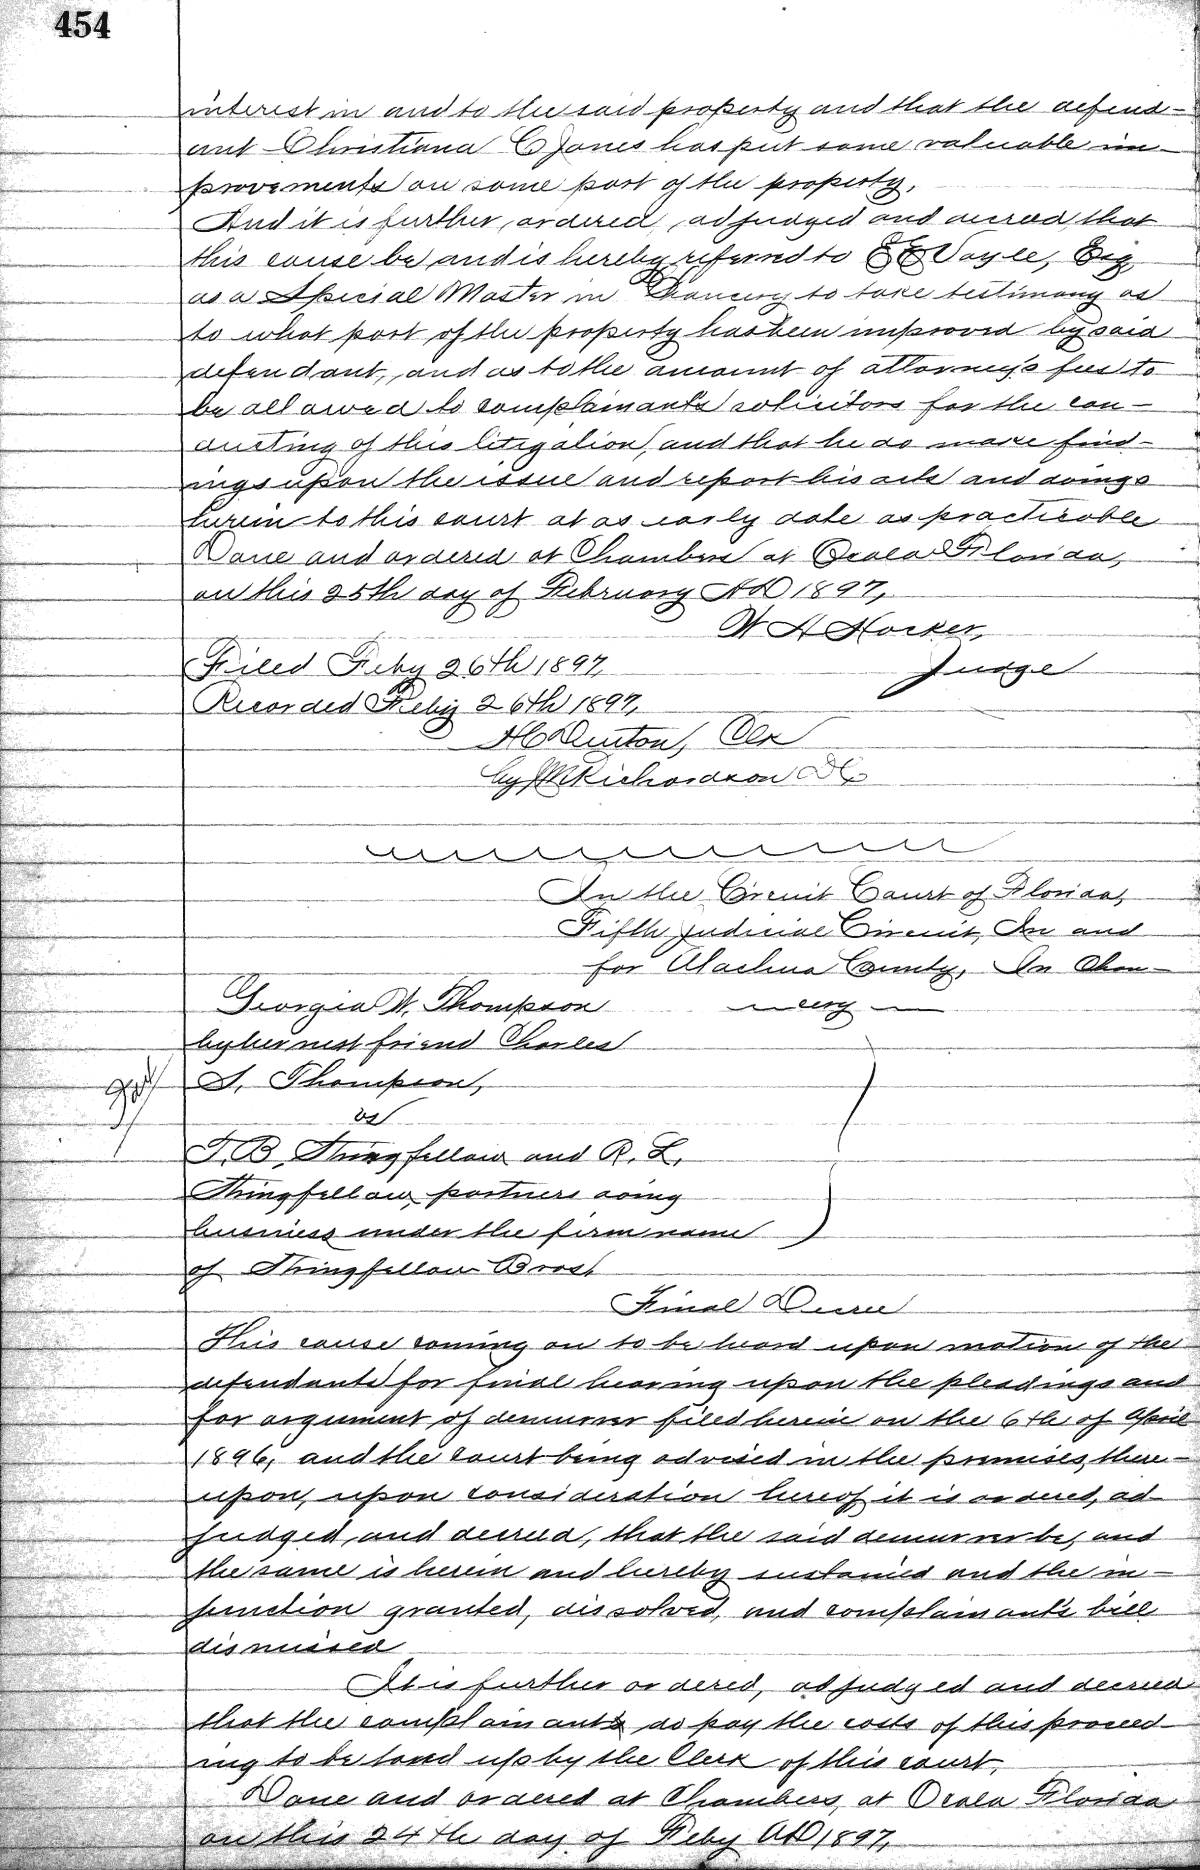 454
interest in and to the said property and that the defend-
ant Christiana C Jones has put some valuable im-
provements on some part of the property,
And it is further, ordered, adjudged and decreed that
this cause be and is hereby referred to E E Voyle, Esq,
as a Special Master in Chancery to take testimony as
to what part of the property has been improved by said
defendant, and as to the amount of attorney's fees to
be allowed to complainants solicitors for the con-
ducting of this litigation, and that he do make find-
ings upon the issue and report his acts and doings
herein to this court at as early date as practicable
Done and ordered at Chambers at Ocala Florida,
on this 25th day of February AD 1897,
W A Hocker,
Judge
Filed Feby 26th 1897,
Recorded Feby 26th 1897,
H C Denton, Clk
by Richardson DC
In the Circuit Court of Florida,
Fifth Judicial Circuit, In and
for Alachua County, In Chan-
cery
Georgia W. Thompson
by her next friend Charles
S. Thompson,
vs
T. B. Stringfellow and R. L.
Stringfellow, partners doing
business under the firm name
of Stringfellow Bros,
Final Decree
This cause coming on to be heard upon motion of the
defendants for final hearing upon the pleadings and
for argument of demurrer filed herein on the 6th of April
1896, and the court being advised in the premises, there-
upon, upon consideration hereof it is ordered, ad-
judged, and decreed, that the said demurrer be, and
the same is herein and hereby sustained and the in-
junction granted, dissolved, and complainant's bill
dismissed
It is further ordered, adjudged and decreed
that the complainants do pay the costs of this proceed-
ing to be taxed up by the Clerk of this court,
Done and ordered at Chambers, at Ocala Florida
on this 24th day of Feby AD 1897,